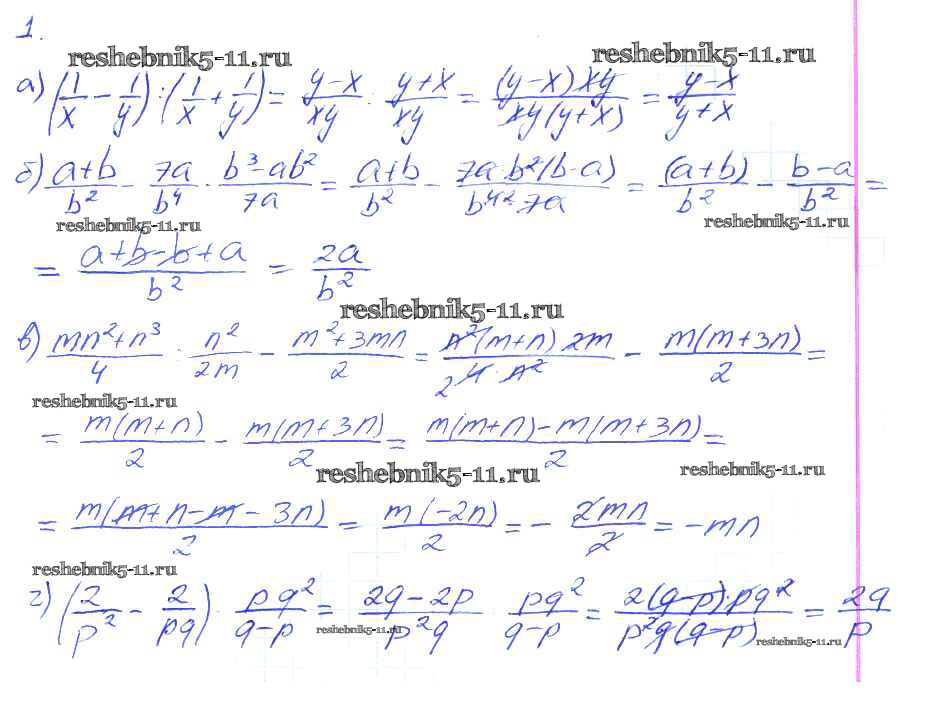 1.
reshebnik5-11.ru reshebnik5-11.ru
а) (1/x − 1/y) : (1/x + 1/y) = (y−x)/(xy) : (y+x)/(xy) = ((y−x)xy)/(xy(y+x)) = (y−x)/(y+x)
б) (a+b)/b² − 7a/b⁴ · (b³−ab²)/(7a) = (a+b)/b² − (7a·b²(b−a))/(b⁴ ²·7a) = (a+b)/b² − (b−a)/b² =
reshebnik5-11.ru reshebnik5-11.ru
= (a+b−b+a)/b² = 2a/b²
reshebnik5-11.ru
в) (mn²+n³)/4 : n²/(2m) − (m²+3mn)/2 = (n²(m+n)2m)/(2 4·n²) − (m(m+3n))/2 =
reshebnik5-11.ru
= (m(m+n))/2 − (m(m+3n))/2 = (m(m+n)−m(m+3n))/2 =
reshebnik5-11.ru reshebnik5-11.ru
= (m(m+n−m−3n))/2 = (m(−2n))/2 = −(2mn)/2 = −mn
reshebnik5-11.ru
г) (2/p² − 2/(pq)) · (pq²)/(q−p) = (2q−2p)/(p²q) · (pq²)/(q−p) = (2(q−p)·pq²)/(p²q(q−p)) = 2q/p
reshebnik5-11.ru reshebnik5-11.ru